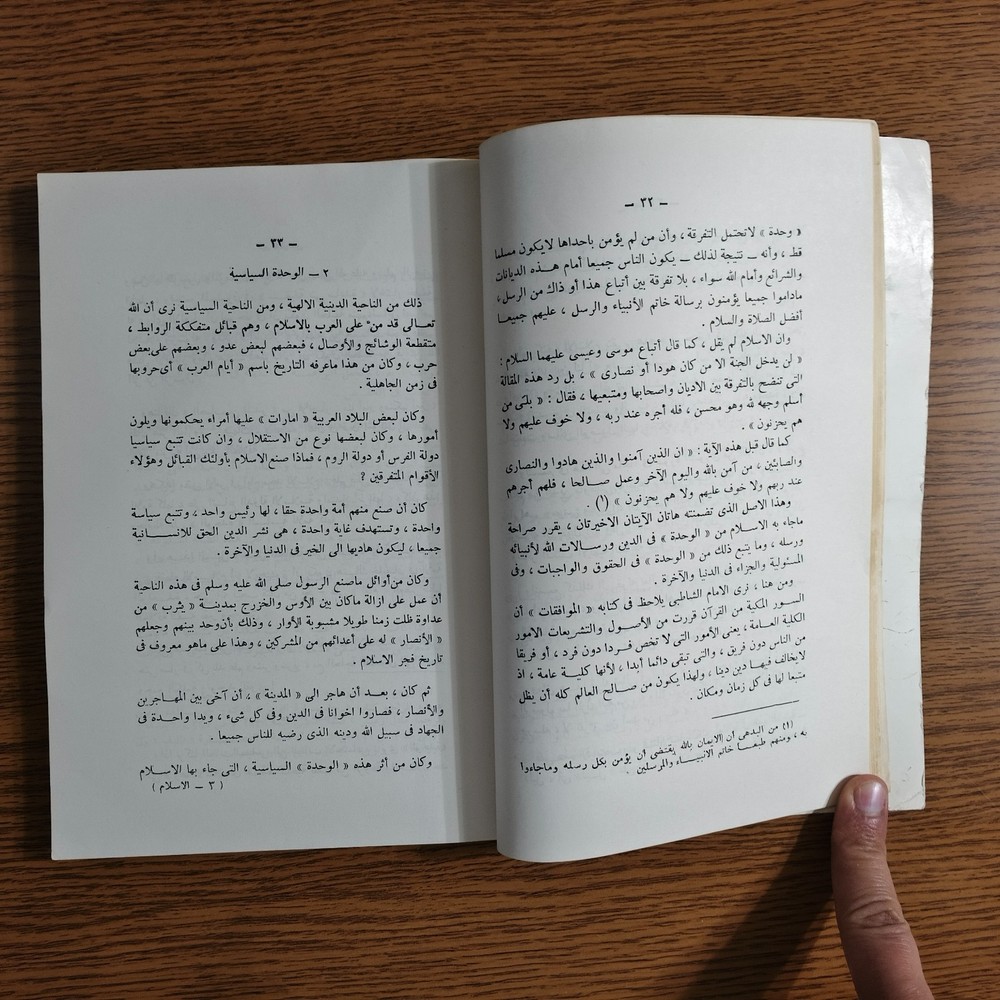 ـ ٣٢ ـ
« وحدة » لاتحتمل التفرقة ، وأن من لم يؤمن باحداها لايكون مسلما
قط ، وأنه ــ نتيجة لذلك ــ يكون الناس جميعا أمام هذه الديانات
والشرائع وأمام الله سواء ، بلا تفرقة بين أتباع هذا أو ذاك من الرسل ،
ماداموا جميعا يؤمنون برسالة خاتم الأنبياء والرسل ، عليهم جميعا
أفضل الصلاة والسلام .
وان الاسلام لم يقل ، كما قال أتباع موسى وعيسى عليهما السلام :
« لن يدخل الجنة الا من كان هودا أو نصارى » ، بل رد هذه المقالة
التى تنضح بالتفرقة بين الاديان واصحابها ومتبعيها ، فقال : « بلى من
أسلم وجهه لله وهو محسن ، فله أجره عند ربه ، ولا خوف عليهم ولا
هم يحزنون » .
كما قال قبل هذه الآية : « ان الذين آمنوا والذين هادوا والنصارى
والصابئين ، من آمن بالله واليوم الآخر وعمل صالحا ، فلهم أجرهم
عند ربهم ولا خوف عليهم ولا هم يحزنون » (١) .
وهذا الاصل الذى تضمنته هاتان الآيتان الاخيرتان ، يقرر صراحة
ماجاء به الاسلام من « الوحدة » فى الدين ورسالات الله لأنبيائه
ورسله ، وما يتبع ذلك من « الوحدة » فى الحقوق والواجبات ، وفى
المسئولية والجزاء فى الدنيا والآخرة .
ومن هنا ، نرى الامام الشاطبى يلاحظ فى كتابه « الموافقات » أن
السور المكية من القرآن قررت من الأصول والتشريعات الامور
الكلية العامة ، يعنى الأمور التى لا تخص فردا دون فرد ، أو فريقا
من الناس دون فريق ، والتى تبقى دائما أبدا ، لأنها كلية عامة ، اذ
لايخالف فيها دين دينا ، ولهذا يكون من صالح العالم كله أن يظل
متبعا لها فى كل زمان ومكان .
(١) من البدهى أن الايمان بالله يقتضى أن يؤمن بكل رسله وماجاءوا
به ، ومنهم طبعا خاتم الانبياء والمرسلين .
ـ ٣٣ ـ
٢ ــ الوحدة السياسية
ذلك من الناحية الدينية الالهية ، ومن الناحية السياسية نرى أن الله
تعالى قد منّ على العرب بالاسلام ، وهم قبائل متفككة الروابط ،
متقطعة الوشائج والأوصال ، فبعضهم لبعض عدو ، وبعضهم على بعض
حرب ، وكان من هذا ماعرفه التاريخ باسم « أيام العرب » أى حروبها
فى زمن الجاهلية .
وكان لبعض البلاد العربية « امارات » عليها أمراء يحكمونها ويلون
أمورها ، وكان لبعضها نوع من الاستقلال ، وان كانت تتبع سياسيا
دولة الفرس أو دولة الروم ، فماذا صنع الاسلام بأولئك القبائل وهؤلاء
الأقوام المتفرقين ؟
كان أن صنع منهم أمة واحدة حقا ، لها رئيس واحد ، وتتبع سياسة
واحدة ، وتستهدف غاية واحدة ، هى نشر الدين الحق للانسانية
جميعا ، ليكون هاديها الى الخير فى الدنيا والآخرة .
وكان من أوائل ماصنع الرسول صلى الله عليه وسلم فى هذه الناحية
أن عمل على ازالة ماكان بين الأوس والخزرج بمدينة « يثرب » من
عداوة ظلت زمنا طويلا مشبوبة الأوار ، وذلك بأن وحد بينهم وجعلهم
« الأنصار » له على أعدائهم من المشركين ، وهذا على ماهو معروف فى
تاريخ فجر الاسلام .
ثم كان ، بعد أن هاجر الى « المدينة » ، أن آخى بين المهاجرين
والأنصار ، فصاروا اخوانا فى الدين وفى كل شىء ، ويدا واحدة فى
الجهاد فى سبيل الله ودينه الذى رضيه للناس جميعا .
وكان من أثر هذه « الوحدة » السياسية ، التى جاء بها الاسلام
( ٣ ــ الاسلام )